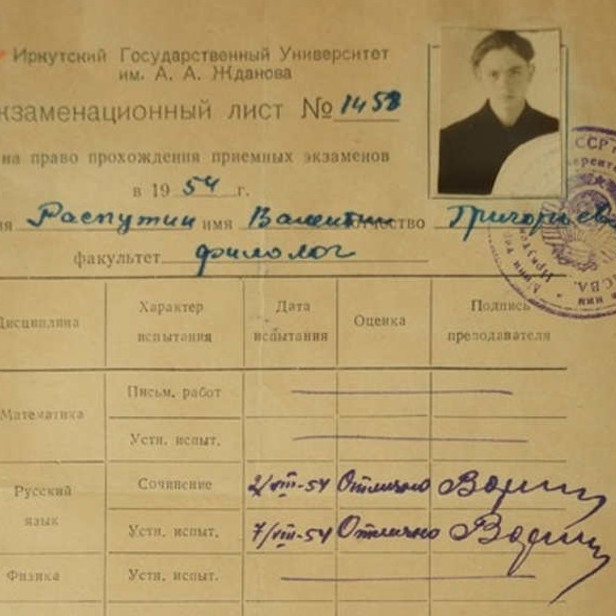 Иркутский Государственный Университет
им. А. А. Жданова
кзаменационный лист № 1458
на право прохождения приемных экзаменов
в 19 54 г.
ия Распутин имя Валентин отчество Григорьев
факультет филолог
Дисциплина Характер испытания Дата испытания Оценка Подпись преподавателя
Математика Письм. работ
Устн. испыт.
Русский язык Сочинение 2/VIII-54 Отлично
Устн. испыт. 7/VIII-54 Отлично
Физика Устн. испыт.